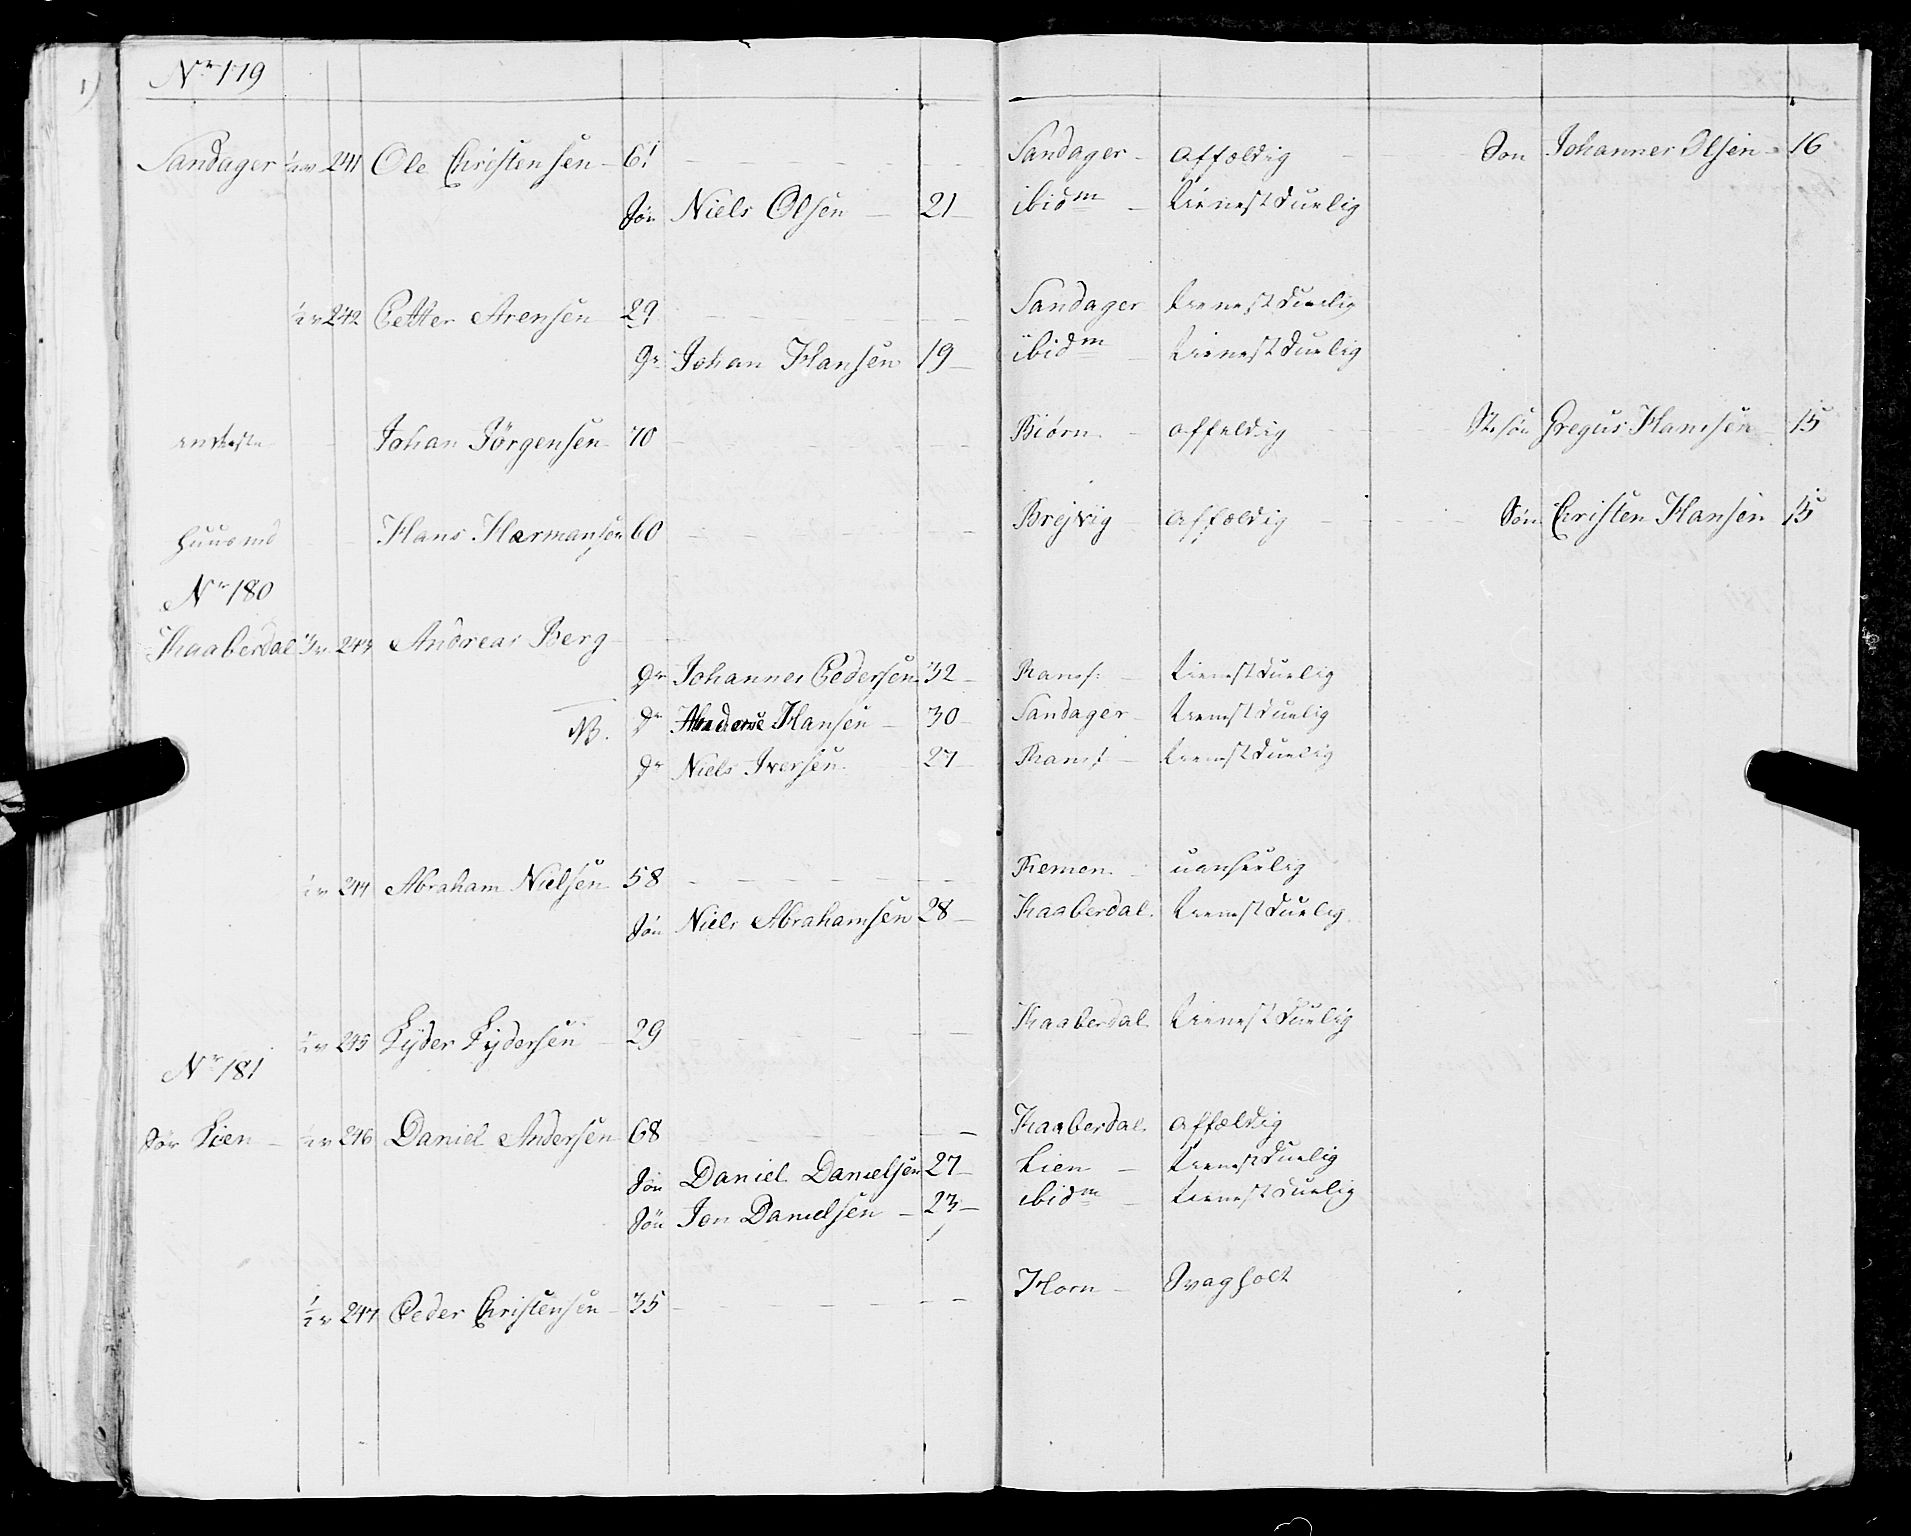 Nr 179
Sandager 241 Ole Christensen 61 Sandager affældig Søn Johannes Olsen 16
Søn Niels Olsen 21 ibidm tienestduelig
242 Petter Arensen 29 Sandager tienestduelig
Dr Johan Hansen 19 ibidm tienestduelig
Johan Jörgensen 70 Biørn affeldig St. søn Gregus Hansen 15
huusmd Hans Harmansen 60 Brejvig affældig Søn Christen Hansen 15
Nr 180
Kaaberdal 243 Andreas Berg
Dr Johannes Pedersen 32 tienestduelig
NB. Dr Hansen 30 Sandager tienestduelig
Dr Niels Iversen 27 tienestduelig
244 Abraham Nielsen 58 Remen
Søn Niels Abrahamsen 28 Kaaberdal tienestduelig
½ v 245 Lyder Lydersen 29 Kaaberdal tienestduelig
Nr 181
Sør Lien ½ v 246 Daniel Andersen 68 Kaaberdal affældig
Søn Daniel Danielsen 27 Lien tienestduelig
Søn Jon Danielsen 23 ibidm tienestduelig
½ v 247 Peder Christensen 35 Horn